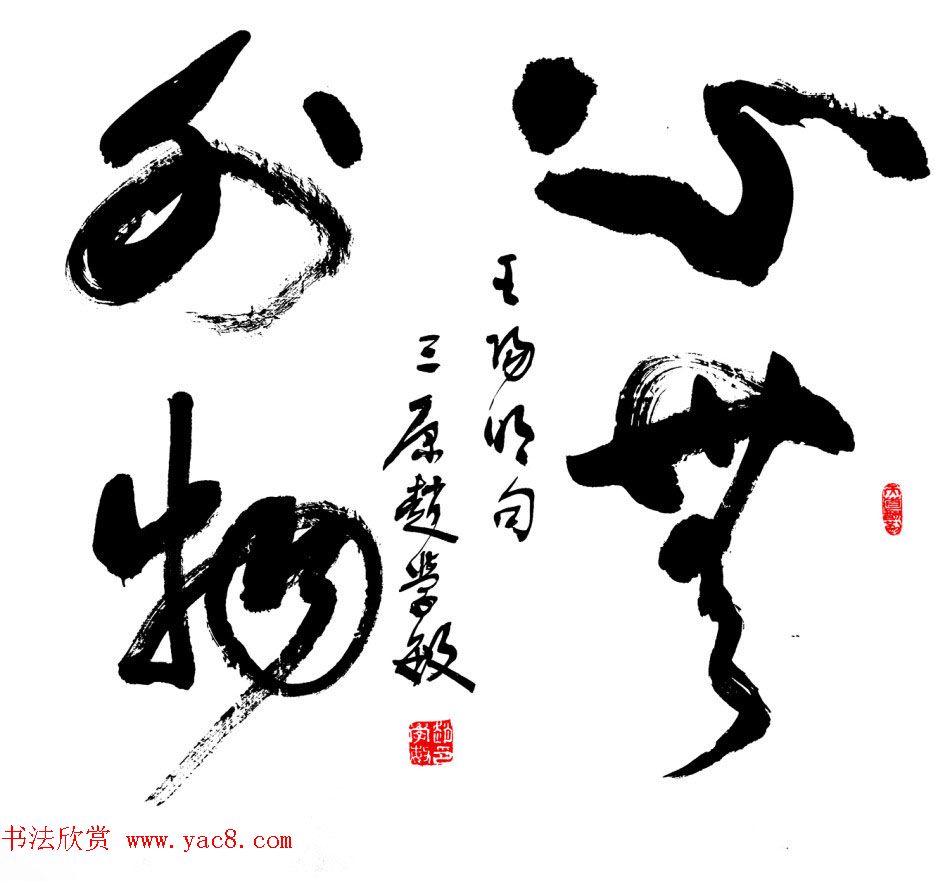 心無
外物
王陽明句
三原趙學敏
書法欣赏 www.yac8.com